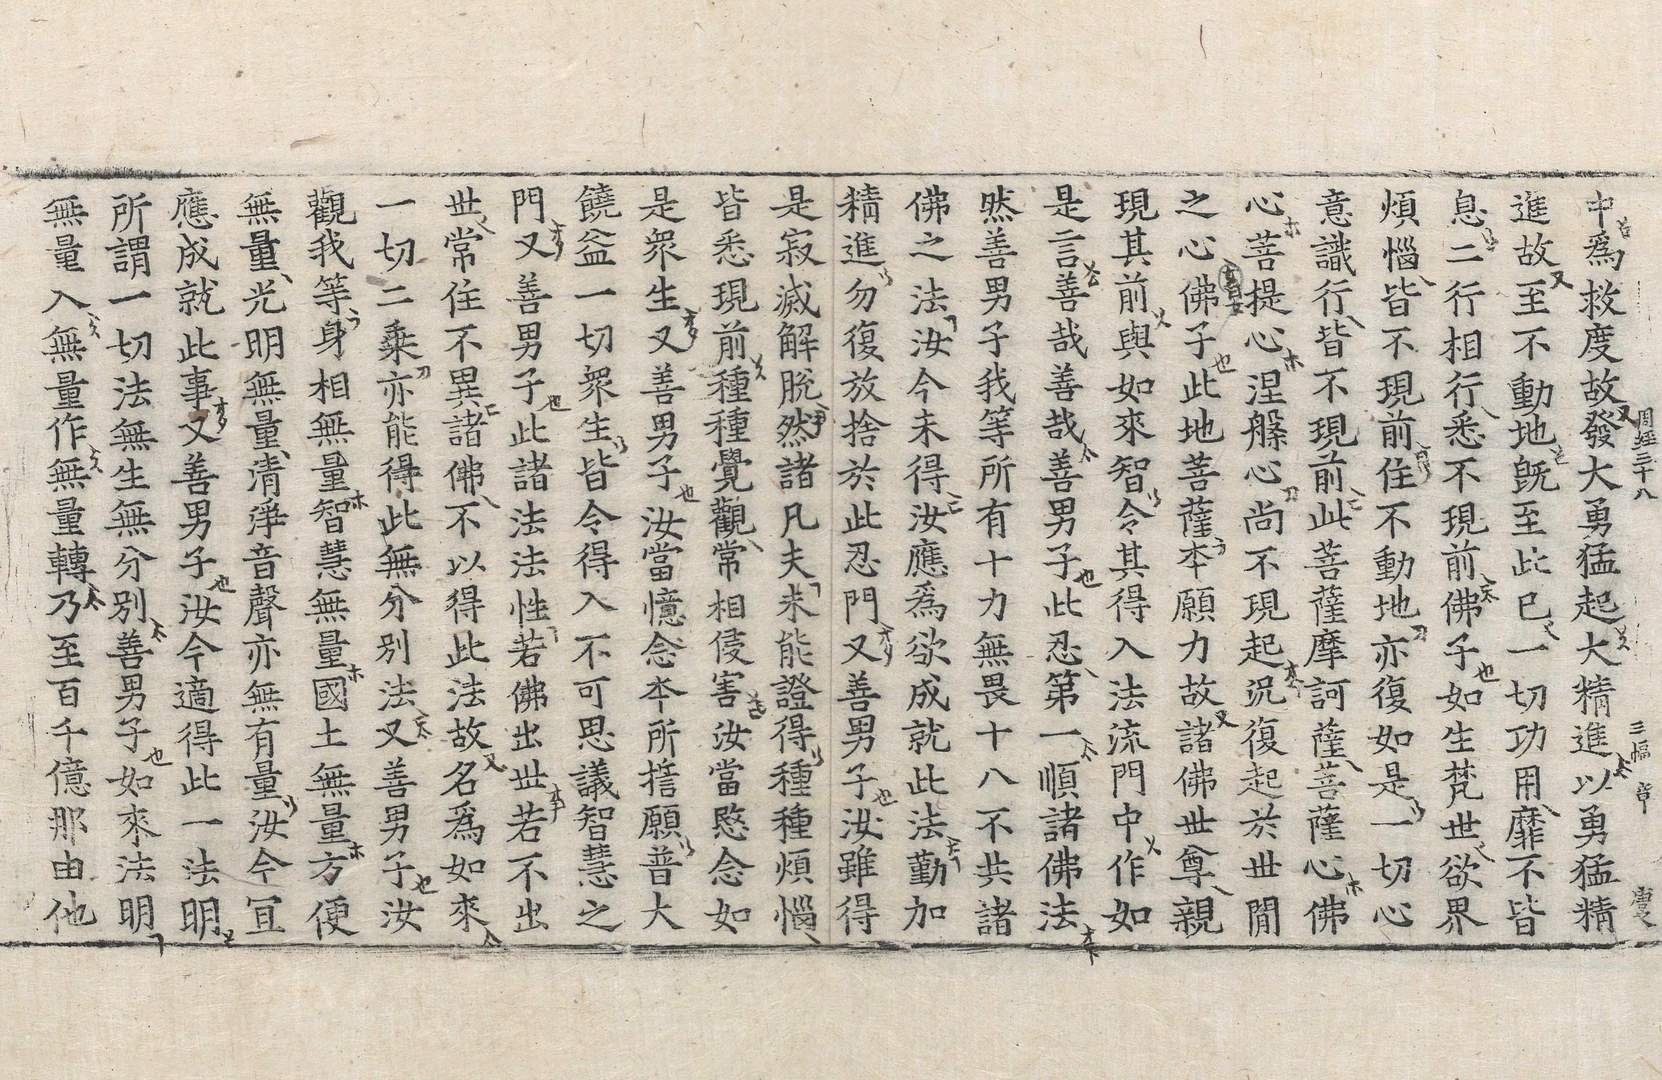 周經三十八　三幅　章　慶
中爲救度故發大勇猛起大精進以勇猛精
進故至不動地旣至此已一切功用靡不皆
息二行相行悉不現前佛子如生梵世欲界
煩惱皆不現前住不動地亦復如是一切心
意識行皆不現前此菩薩摩訶薩菩薩心佛
心菩提心涅槃心尚不現起況復起於世閒
之心佛子此地菩薩本願力故諸佛世尊親
現其前與如來智令其得入法流門中作如
是言善哉善哉善男子此忍第一順諸佛法
然善男子我等所有十力無畏十八不共諸
佛之法汝今未得汝應爲欲成就此法勤加
精進勿復放捨於此忍門又善男子汝雖得
是寂滅解脫然諸凡夫未能證得種種煩惱
皆悉現前種種覺觀常相侵害汝當愍念如
是衆生又善男子汝當憶念本所誓願普大
饒益一切衆生皆令得入不可思議智慧之
門又善男子此諸法法性若佛出世若不出
世常住不異諸佛不以得此法故名爲如來
一切二乘亦能得此無分別法又善男子汝
觀我等身相無量智慧無量國土無量方便
無量光明無量清淨音聲亦無有量汝今宜
應成就此事又善男子汝今適得此一法明
所謂一切法無生無分別善男子如來法明
無量入無量作無量轉乃至百千億那由他